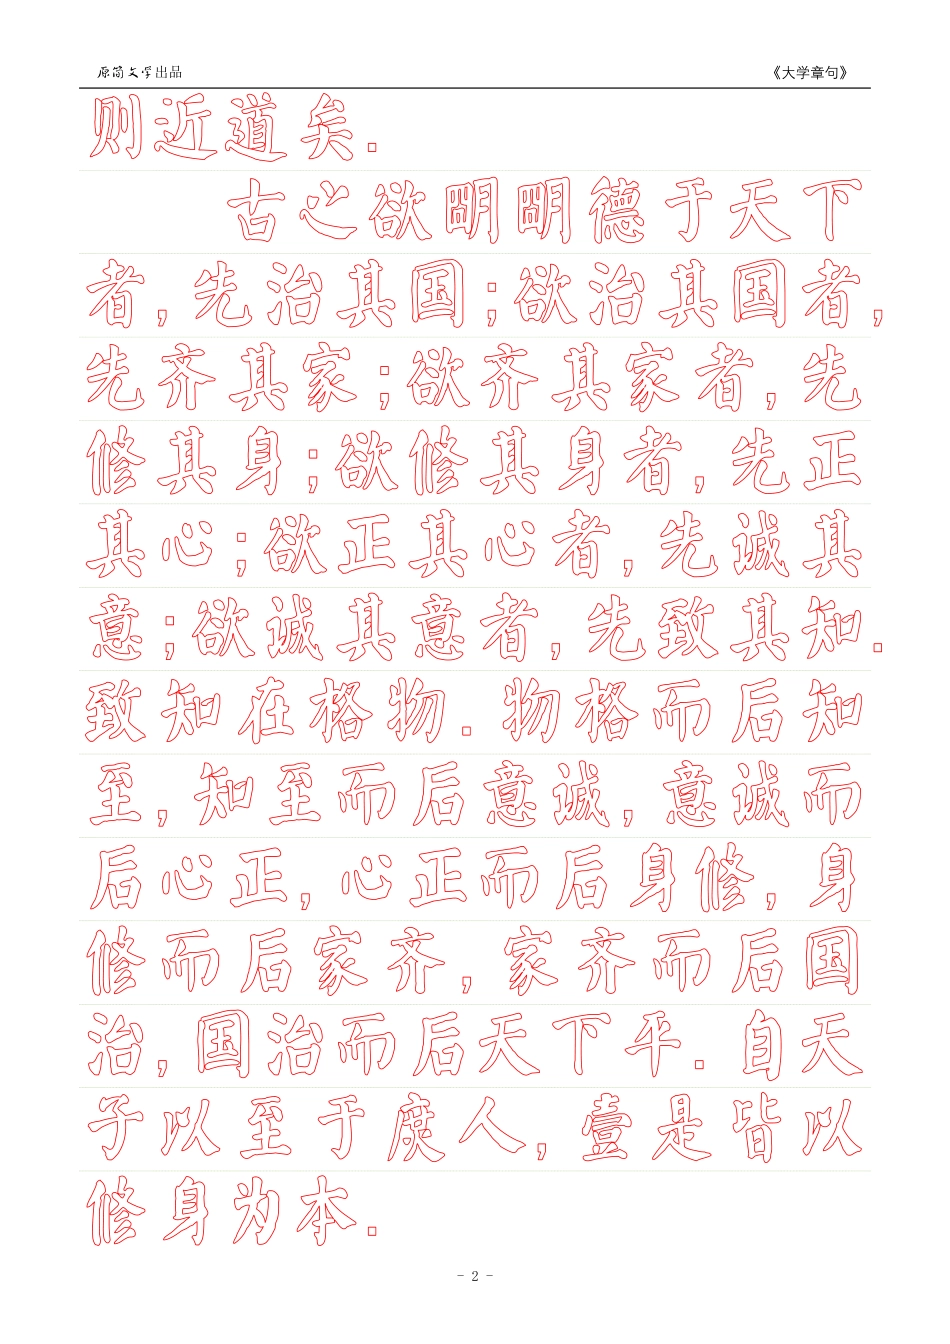 原简文学出品 《大学章句》
则近道矣.
古之欲明明德于天下
者,先治其国;欲治其国者,
先齐其家;欲齐其家者,先
修其身;欲修其身者,先正
其心;欲正其心者,先诚其
意;欲诚其意者,先致其知.
致知在格物.物格而后知
至,知至而后意诚,意诚而
后心正,心正而后身修,身
修而后家齐,家齐而后国
治,国治而后天下平.自天
子以至于庶人,壹是皆以
修身为本.
- 2 -